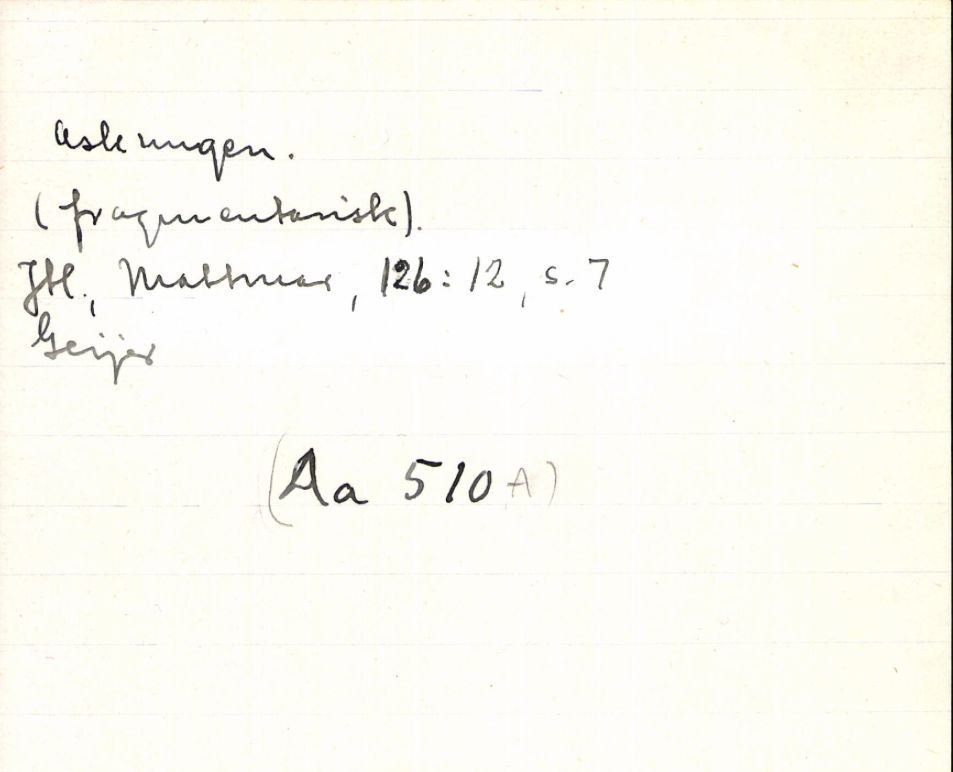 Askungen.
(fragmentarisk).
Jtl., Mattmar, 126:12, s. 7
Geijer
(Aa 510 A)